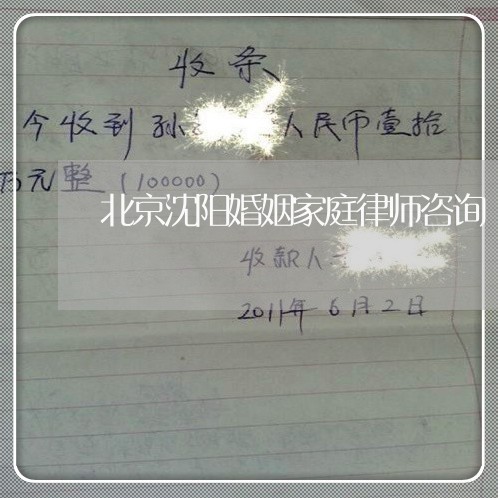 收条
今收到孙 人民币壹拾
万元整（100000）
北京沈阳婚姻家庭律师咨询
收款人
2011年6月2日